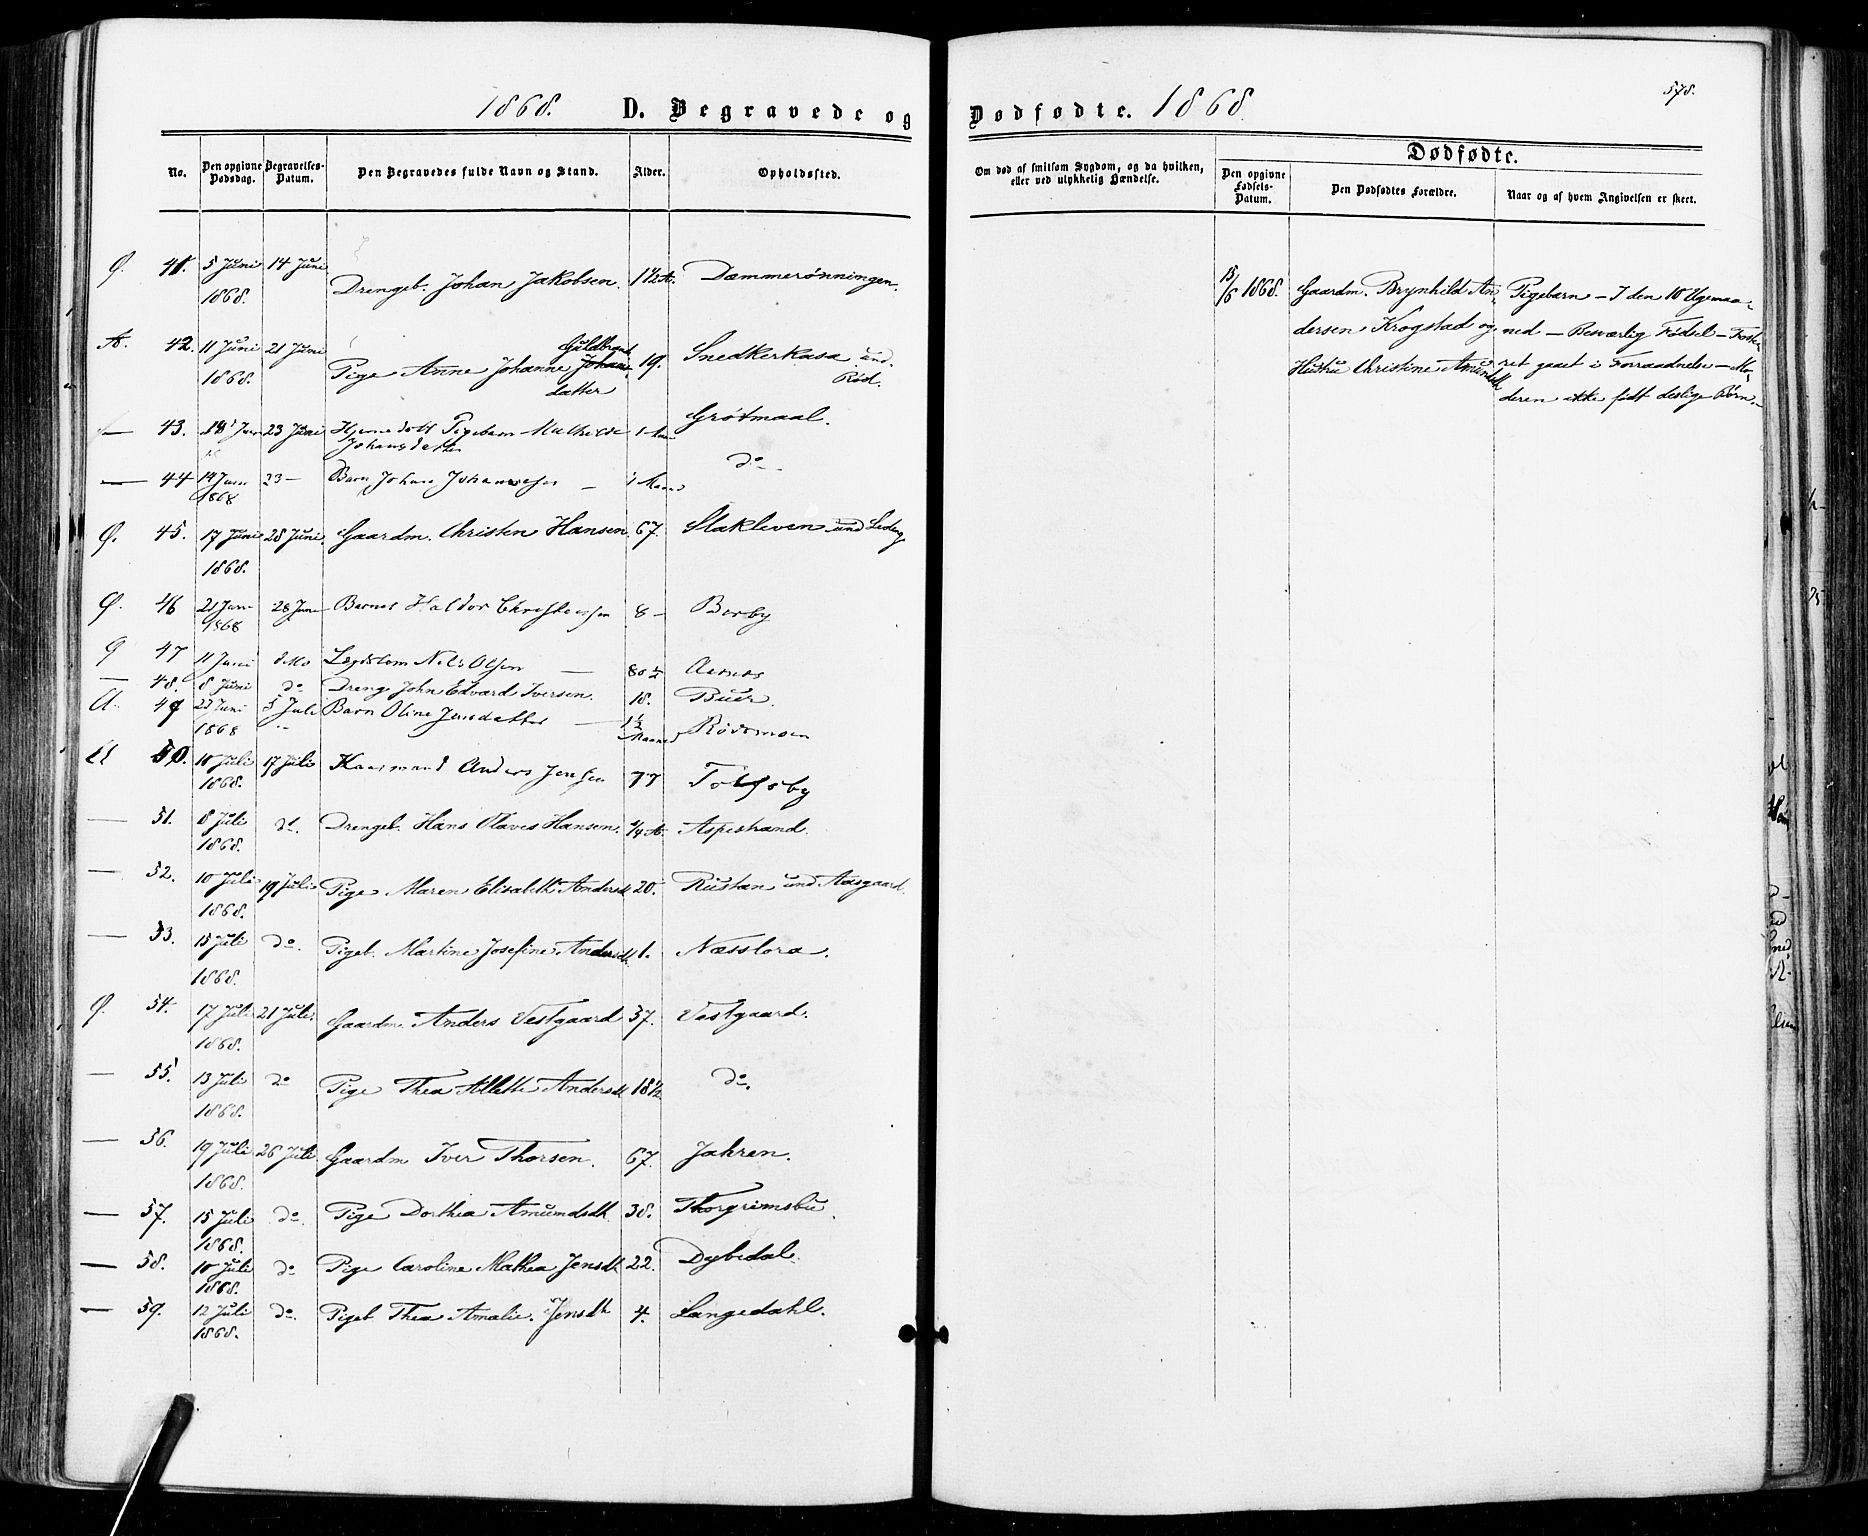 1868. D. Begravede og
Dødfødte. 1868
578.
No.
Den opgivne Dødsdag.
Begravelses-Datum.
Den Begravedes fulde Navn og Stand.
Alder.
Opholdssted.
Om død af smitsom Sygdom, og da hvilken, eller ved ulykkelig Hændelse.
Dødfødte.
Den opgivne Fødsels-Datum.
Den Dødfødtes Forældre.
Naar og af hvem Angivelsen er skeet.
Ø. 41. 5 Juni 1868. 14 Juni Drengeb. Johan Jakobsen. 1 1/2 A. Dæmmerønningen.
A. 42. 11 Juni 1868. 21 Juni Pige Anne Johanne Guldbrands datter 19. Snedkerkasa und. Rød.
— 43. 18 Juni 23 Juni Hjemedøbt Pigebarn Mathilde Johansdatter 1 Maan Grøtmaal.
— 44 19 Juni 1868 23 — Barn Johan Johannesen — 1 Maaned do
Ø. 45. 17 Juni 1868. 28 Juni. Gaardm. Christen Hansen. 67. Stakleven und
Ø. 46 21 Juni 1868 28 Juni Barnet Haldor Christensen 8 — Berby
Ø 47 11 Juni Lægdslem Nils Olsen — 80 1/2 Aarnes
— 48. 8 Juni do Dreng John Edvard Iversen. 18. Buer.
A. 49 23 Juni 1868 5 Juli Barn Oline Jensdatter — 1 1/2 Maaned Rødsmoen
A 50. 10 Juli 1868. 17 Juli Kaarmand Anders Jensen 77 Tolfsby
— 51. 8 Juli 1868. do. Drengeb. Hans Olaves Hansen. 1/4 A. Aspestrand.
— 52. 10 Juli 1868. 19 Juli Pige Maren Elisabeth Andersd. 20. Rustan und Aasgaard.
— 53. 15 Juli 1868. do. Pigeb. Martine Josefine Andersdt. 1. Næsslora.
Ø. 54. 17 Juli 1868. 21 Juli. Gaardm. Anders Vestgaard 57. Vestgaard.
— 55. 13 Juli 1868. do Pige Thea Allette Andersdt 18 1/2 do.
— 56. 19 Juli 1868. 26 Juli Gaardm Iver Thorsen. 67. Jahren.
— 57. 15 Juli 1868. do. Pige Dorthea Amundsdt. 38. Thorgrimsbu.
— 58. 10 Juli 1868. do Pige Caroline Mathea Jensdt 22. Dybedal.
— 59. 12 Juli 1868. do. Pigeb Thea Amalie. Jensdt 4. Langedahl.
15/6 1868.
Gaardm. Brynhild An-
dersen Krogstad og
Hustru Christine Amundsdt
Pigebarn — I den 10 Ugemaa-
ned — Besværlig Fødsel — Foste-
ret gaaet i Forraadnelse — Mo-
deren ikke født deslige Børn.